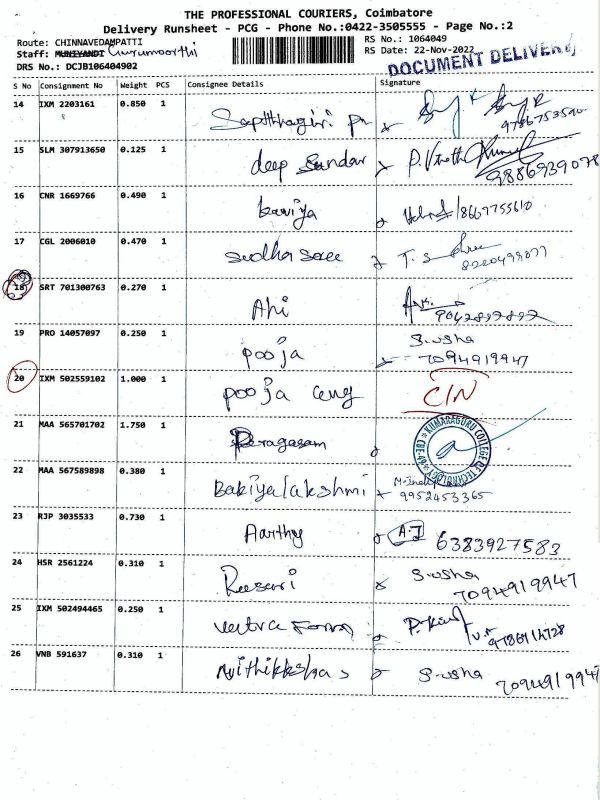 THE PROFESSIONAL COURIERS, Coimbatore
Delivery Runsheet - PCG - Phone No.:0422-3505555 - Page No.:2
Route: CHINNAVEDAMPATTI
RS No.: 1064049
Staff: MUNIYANDI Gurumoorthi
RS Date: 22-Nov-2022
DRS No.: DCJB106404902
DOCUMENT DELIVERY
S No Consignment No Weight PCS Consignee Details Signature
14 IXM 2203161 0.850 1
9786753590
15 SLM 307913650 0.125 1 deep Sundar
9886939078
16 CNR 1669766 0.490 1 kaviya 8667755610
17 CGL 2006010 0.470 1 sudha saree T. S
8220499077
18 SRT 701300763 0.270 1 Ahi
9042897897
19 PRO 14057097 0.250 1 pooja S.usha
7094919947
20 IXM 502559102 1.000 1 pooja CIN
21 MAA 565701702 1.750 1 Peragasam
KUMARAGURU COLLEGE OF TECHNOLOGY
22 MAA 567589898 0.380 1 Bakiyalakshmi
9952453365
23 RJP 3035533 0.730 1 Aarthy A.J 6383927583
24 HSR 2561224 0.310 1 S.usha
7094919947
25 IXM 502494465 0.250 1 Form
26 VNB 591637 0.310 1 S.usha 7094919947